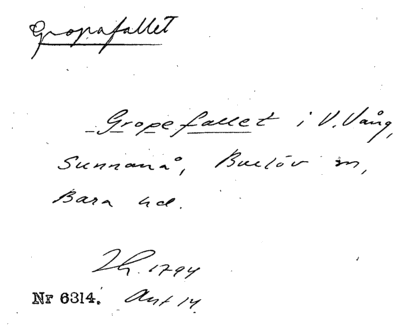 Gropafallet
Gropefallet i V. Vång,
Sunnanå, Burlöv sn,
Bara hd.
Lh. 1794
Nr 6314. Akt 14